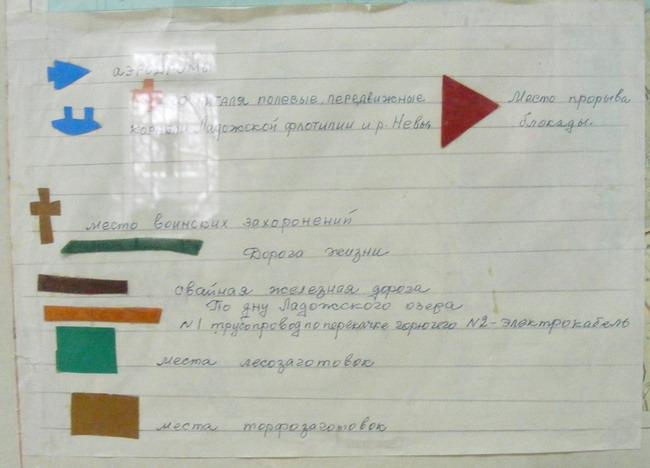 аэродромы
госпиталя полевые, передвижные
корабли Ладожской флотилии и р. Невы
Место прорыва
блокады.
место воинских захоронений
Дорога жизни
свайная железная дорога
По дну Ладожского озера
N1 трубопровод по перекачке горючего N2-электрокабель
места лесозаготовок
места торфозаготовок